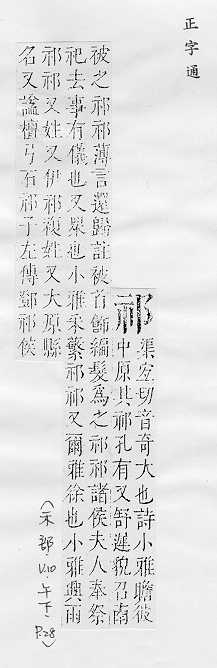 正字通
祁
渠宜切音奇大也詩小雅瞻彼
中原其祁孔有又舒遲貌召南
被之祁祁薄言還歸註被首飾編髮爲之祁祁諸侯夫人奉祭
祀去事有儀也又衆也小雅采繁祁祁又爾雅徐也小雅興雨
祁祁又姓又伊祁複姓又大原縣
名又謚檀弓石祁子左傳鄧祁侯
(示部·V.10·午下·P.28)